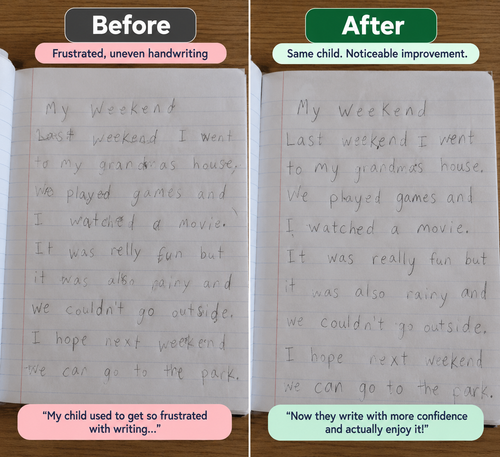 Before
Frustrated, uneven handwriting
My Weekend
Last weekend I went
to my house.
We played games and
I watched a movie.
It was relly fun but
it was also rainy and
we couldn't go outside.
I hope next weekend
we can go to the park.
"My child used to get so frustrated
with writing..."
After
Same child. Noticeable improvement.
My Weekend
Last weekend I went
to my grandmas house.
We played games and
I watched a movie.
It was really fun but
it was also rainy and
we couldn't go outside.
I hope next weekend
we can go to the park.
"Now they write with more confidence
and actually enjoy it!"